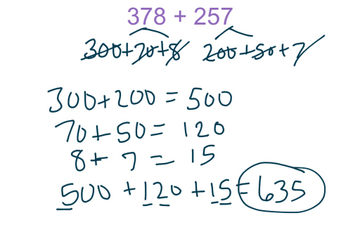 378 + 257
300+70+8 200+50+7
300+200=500
70+50=120
8+7=15
500+120+15=635